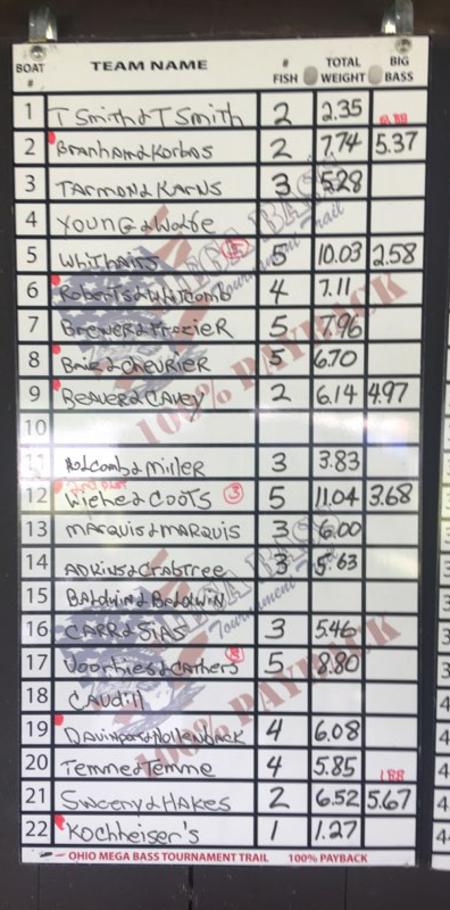 BOAT # TEAM NAME # FISH TOTAL WEIGHT BIG BASS
1 T Smith & T Smith 2 2.35
2 Branham & Korbas 2 7.74 5.37
3 TARMON & KARNS 3 5.28
4 YOUNG & Wolfe
5 Whithairs 5 10.03 2.58
6 Roberts & Whitcomb 4 7.11
7 Brewer & Frazier 5 7.96
8 & Chevrier 5 6.70
9 BEAVER & CAVEY 2 6.14 4.97
10
11 Holcomb & Miller 3 3.83
12 Wiehe & COOTS 3 5 11.04 3.68
13 MARQUIS & MARQUIS 3 6.00
14 ADKINS & CrabTree 3 5.63
15 BALDWIN & BALDWIN
16 CARR & SIAS 3 5.46
17 Voorhies & Carthers 5 8.80
18 CAUDill
19 DAVINPORT & Hollenback 4 6.08
20 Temme & Temme 4 5.85
1 BB
21 Sweeny & HAKES 2 6.52 5.67
22 Kochheiser's 1 1.27
— OHIO MEGA BASS TOURNAMENT TRAIL 100% PAYBACK
MEGA BASS
Tournament Trail
100% PAYBACK
MEGA BASS
Tournament Trail
100% PAYBACK